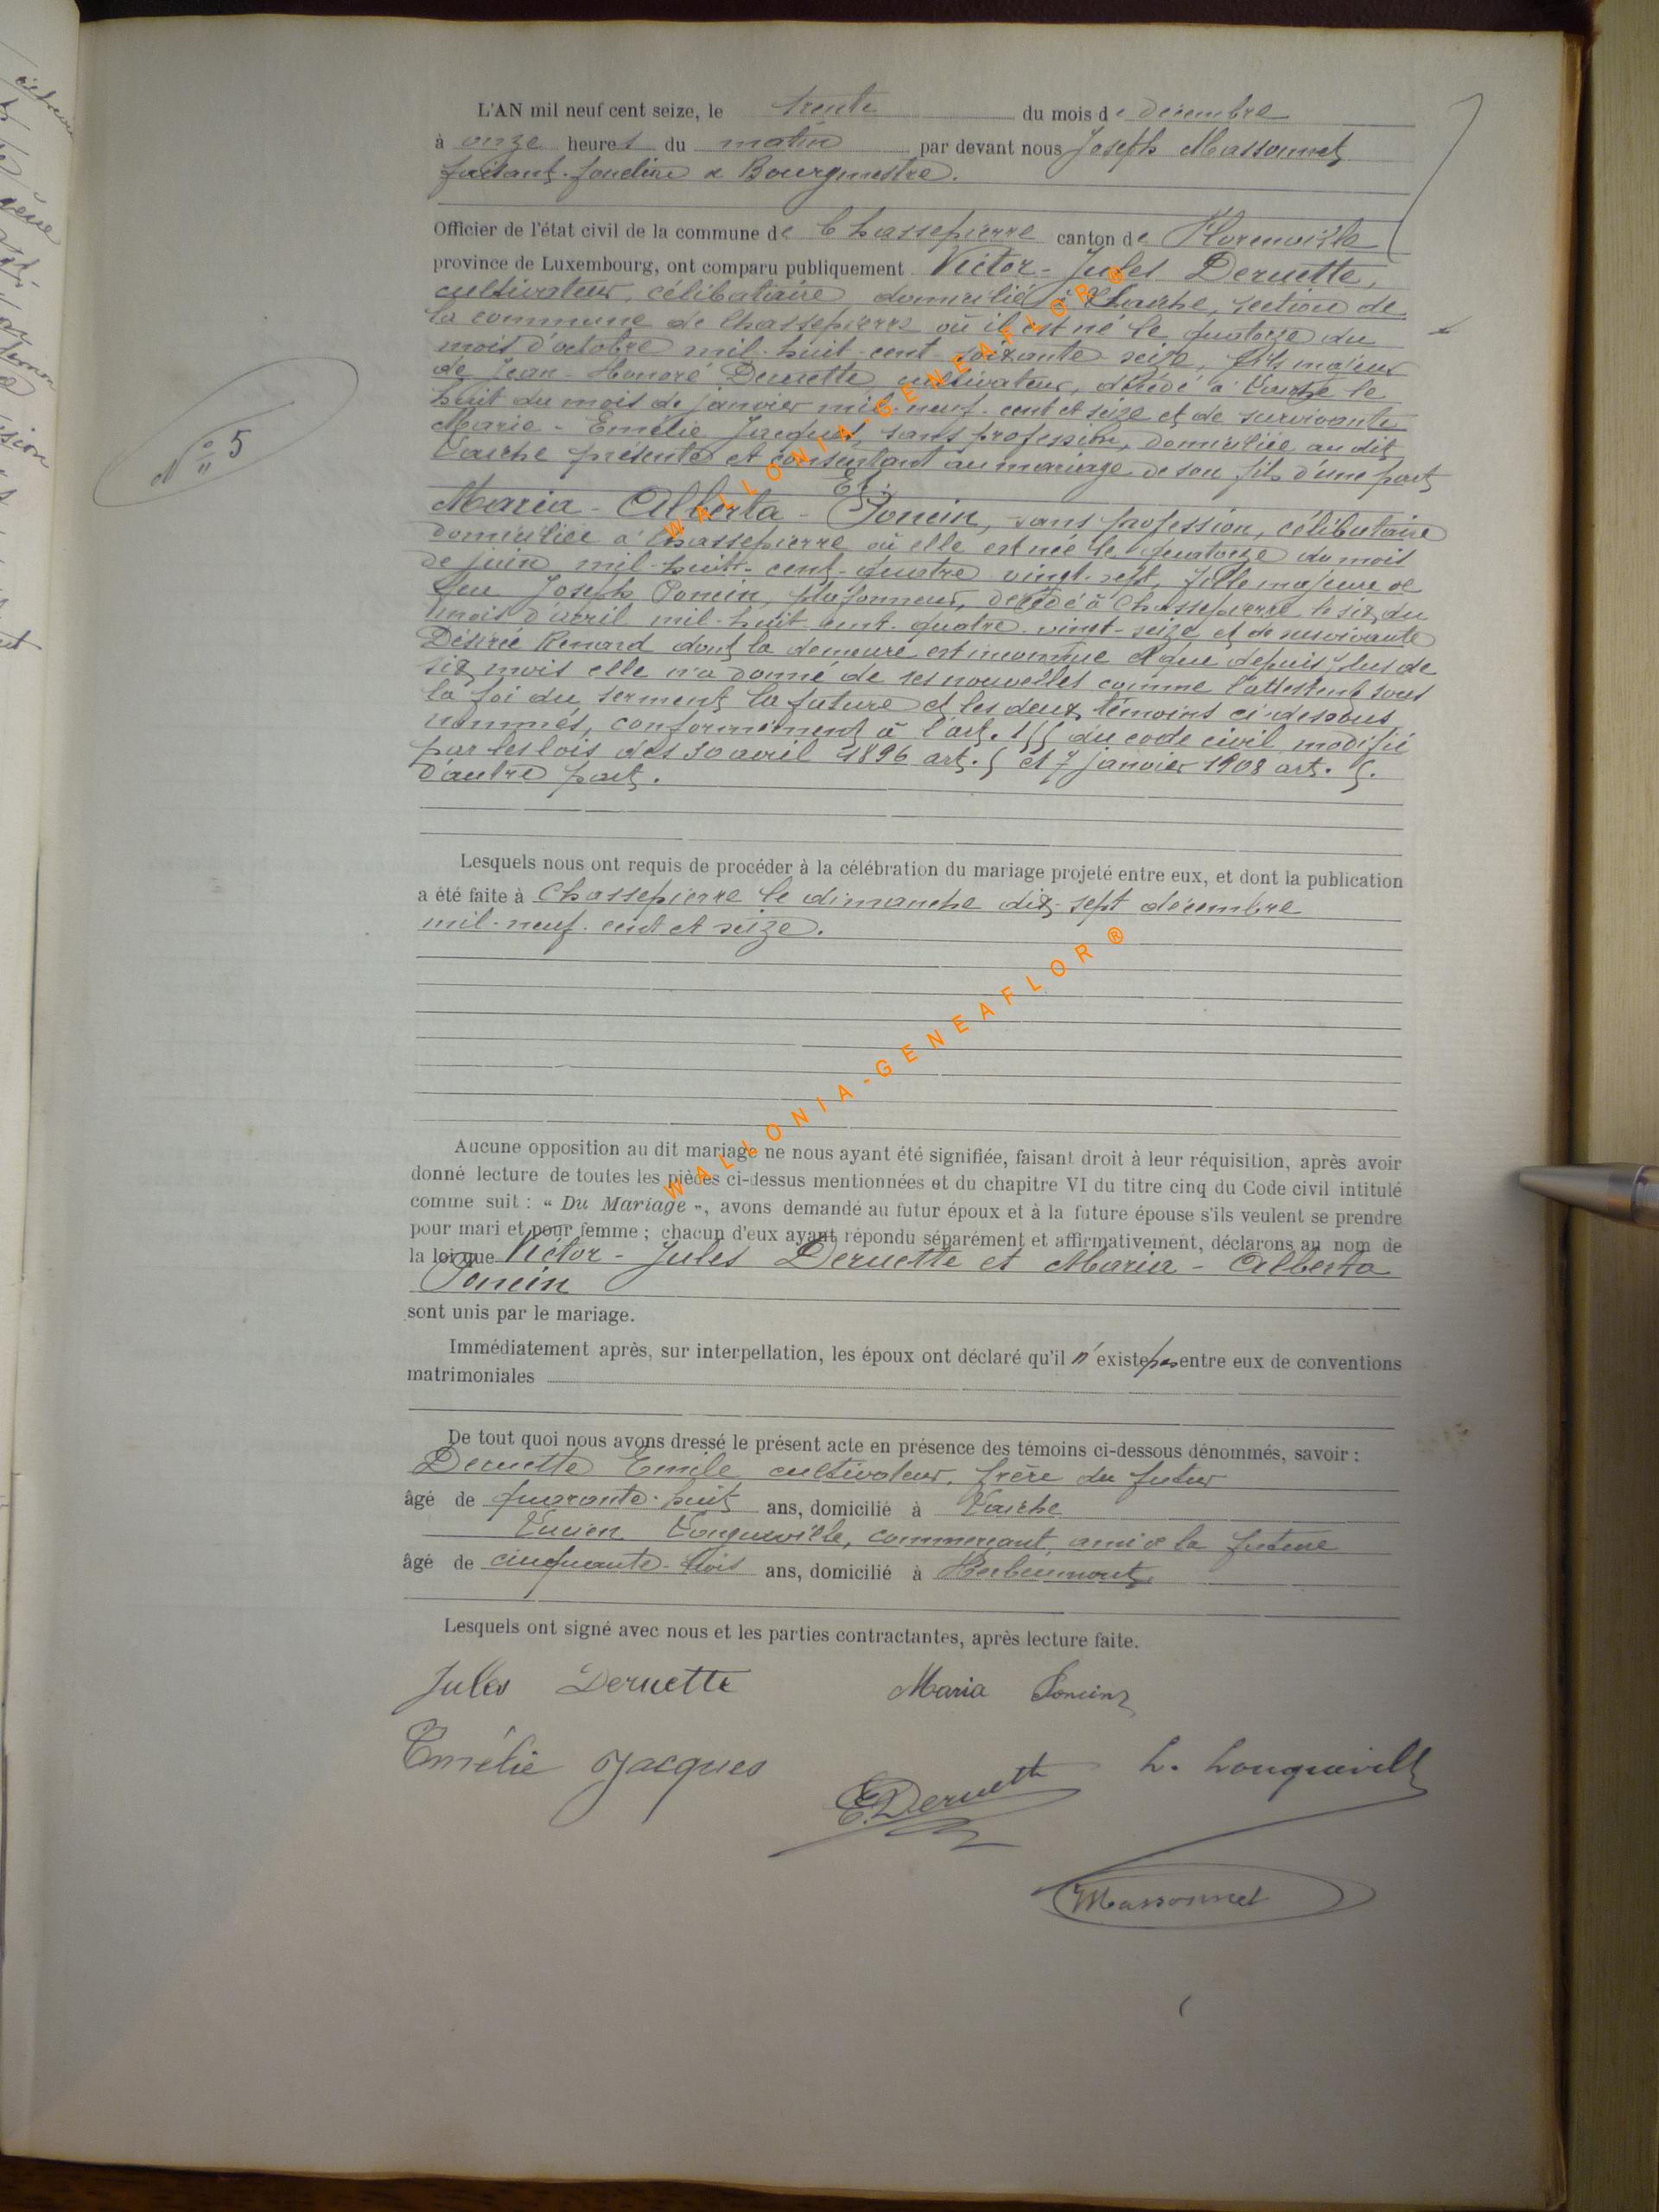 L'AN mil neuf cent seize, le trente du mois de décembre
à onze heures du matin par devant nous Joseph Massonnet
faisant fonction de Bourgmestre.
Officier de l'état civil de la commune de Chassepierre canton de Florenville
province de Luxembourg, ont comparu publiquement Victor-Jules Deruette,
cultivateur, célibataire domicilié à Laiche, section de
la commune de Chassepierre où il est né le quatorze du
mois d'octobre mil-huit-cent-soixante seize, fils majeur
de Jean-Honoré Deruette cultivateur, décédé à Laiche le
huit du mois de janvier mil-neuf-cent et seize et de survivante
Marie-Emélie Jacques, sans profession, domiciliée au dit
Laiche présente et consentant au mariage de son fils d'une part
Et:
Maria-Alberta-Poncin, sans profession, célibataire
domiciliée à Chassepierre où elle est née le quatorze du mois
de juin mil-huit-cent-quatre vingt-sept, fille majeure de
feu Joseph Poncin, plafonneur, décédé à Chassepierre le six du
mois d'avril mil-huit cent-quatre-vingt-seize et de survivante
Désirée Renard dont la demeure est inconnue et que depuis plus de
six mois elle n'a donné de ses nouvelles comme l'attestent sous
la foi du serment la future et les deux témoins ci-dessous
nommés, conformément à l'art. 155 du code civil modifié
par les lois des 30 avril 1896 art. 5 et 7 janvier 1908 art. 5.
d'autre part.
N° 5
Lesquels nous ont requis de procéder à la célébration du mariage projeté entre eux, et dont la publication
a été faite à Chassepierre le dimanche dix-sept décembre
mil-neuf-cent et seize.
Aucune opposition au dit mariage ne nous ayant été signifiée, faisant droit à leur réquisition, après avoir
donné lecture de toutes les pièces ci-dessus mentionnées et du chapitre VI du titre cinq du Code civil intitulé
comme suit : « Du Mariage », avons demandé au futur époux et à la future épouse s'ils veulent se prendre
pour mari et pour femme ; chacun d'eux ayant répondu séparément et affirmativement, déclarons au nom de
la loi que Victor-Jules Deruette et Maria-Alberta
Poncin
sont unis par le mariage.
Immédiatement après, sur interpellation, les époux ont déclaré qu'il n'existe pas entre eux de conventions
matrimoniales
De tout quoi nous avons dressé le présent acte en présence des témoins ci-dessous dénommés, savoir :
Deruette Emile cultivateur, frère du futur
âgé de quarante-huit ans, domicilié à Laiche
Lucien Longueville, commerçant, ami de la future
âgé de cinquante-trois ans, domicilié à Herbeumont
Lesquels ont signé avec nous et les parties contractantes, après lecture faite.
Jules Deruette Maria Poncin
Emélie Jacques E. Deruette L. Longueville
Massonnet
WALLONIA-GENEAFLOR ®
WALLONIA-GENEAFLOR ®